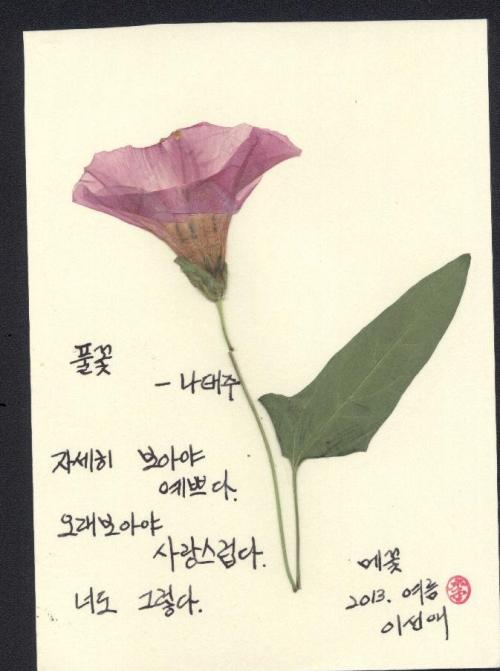 풀꽃
- 나태주
자세히 보아야
예쁘다.
오래보아야
사랑스럽다.
너도 그렇다.
메꽃
2013. 여름
이선애